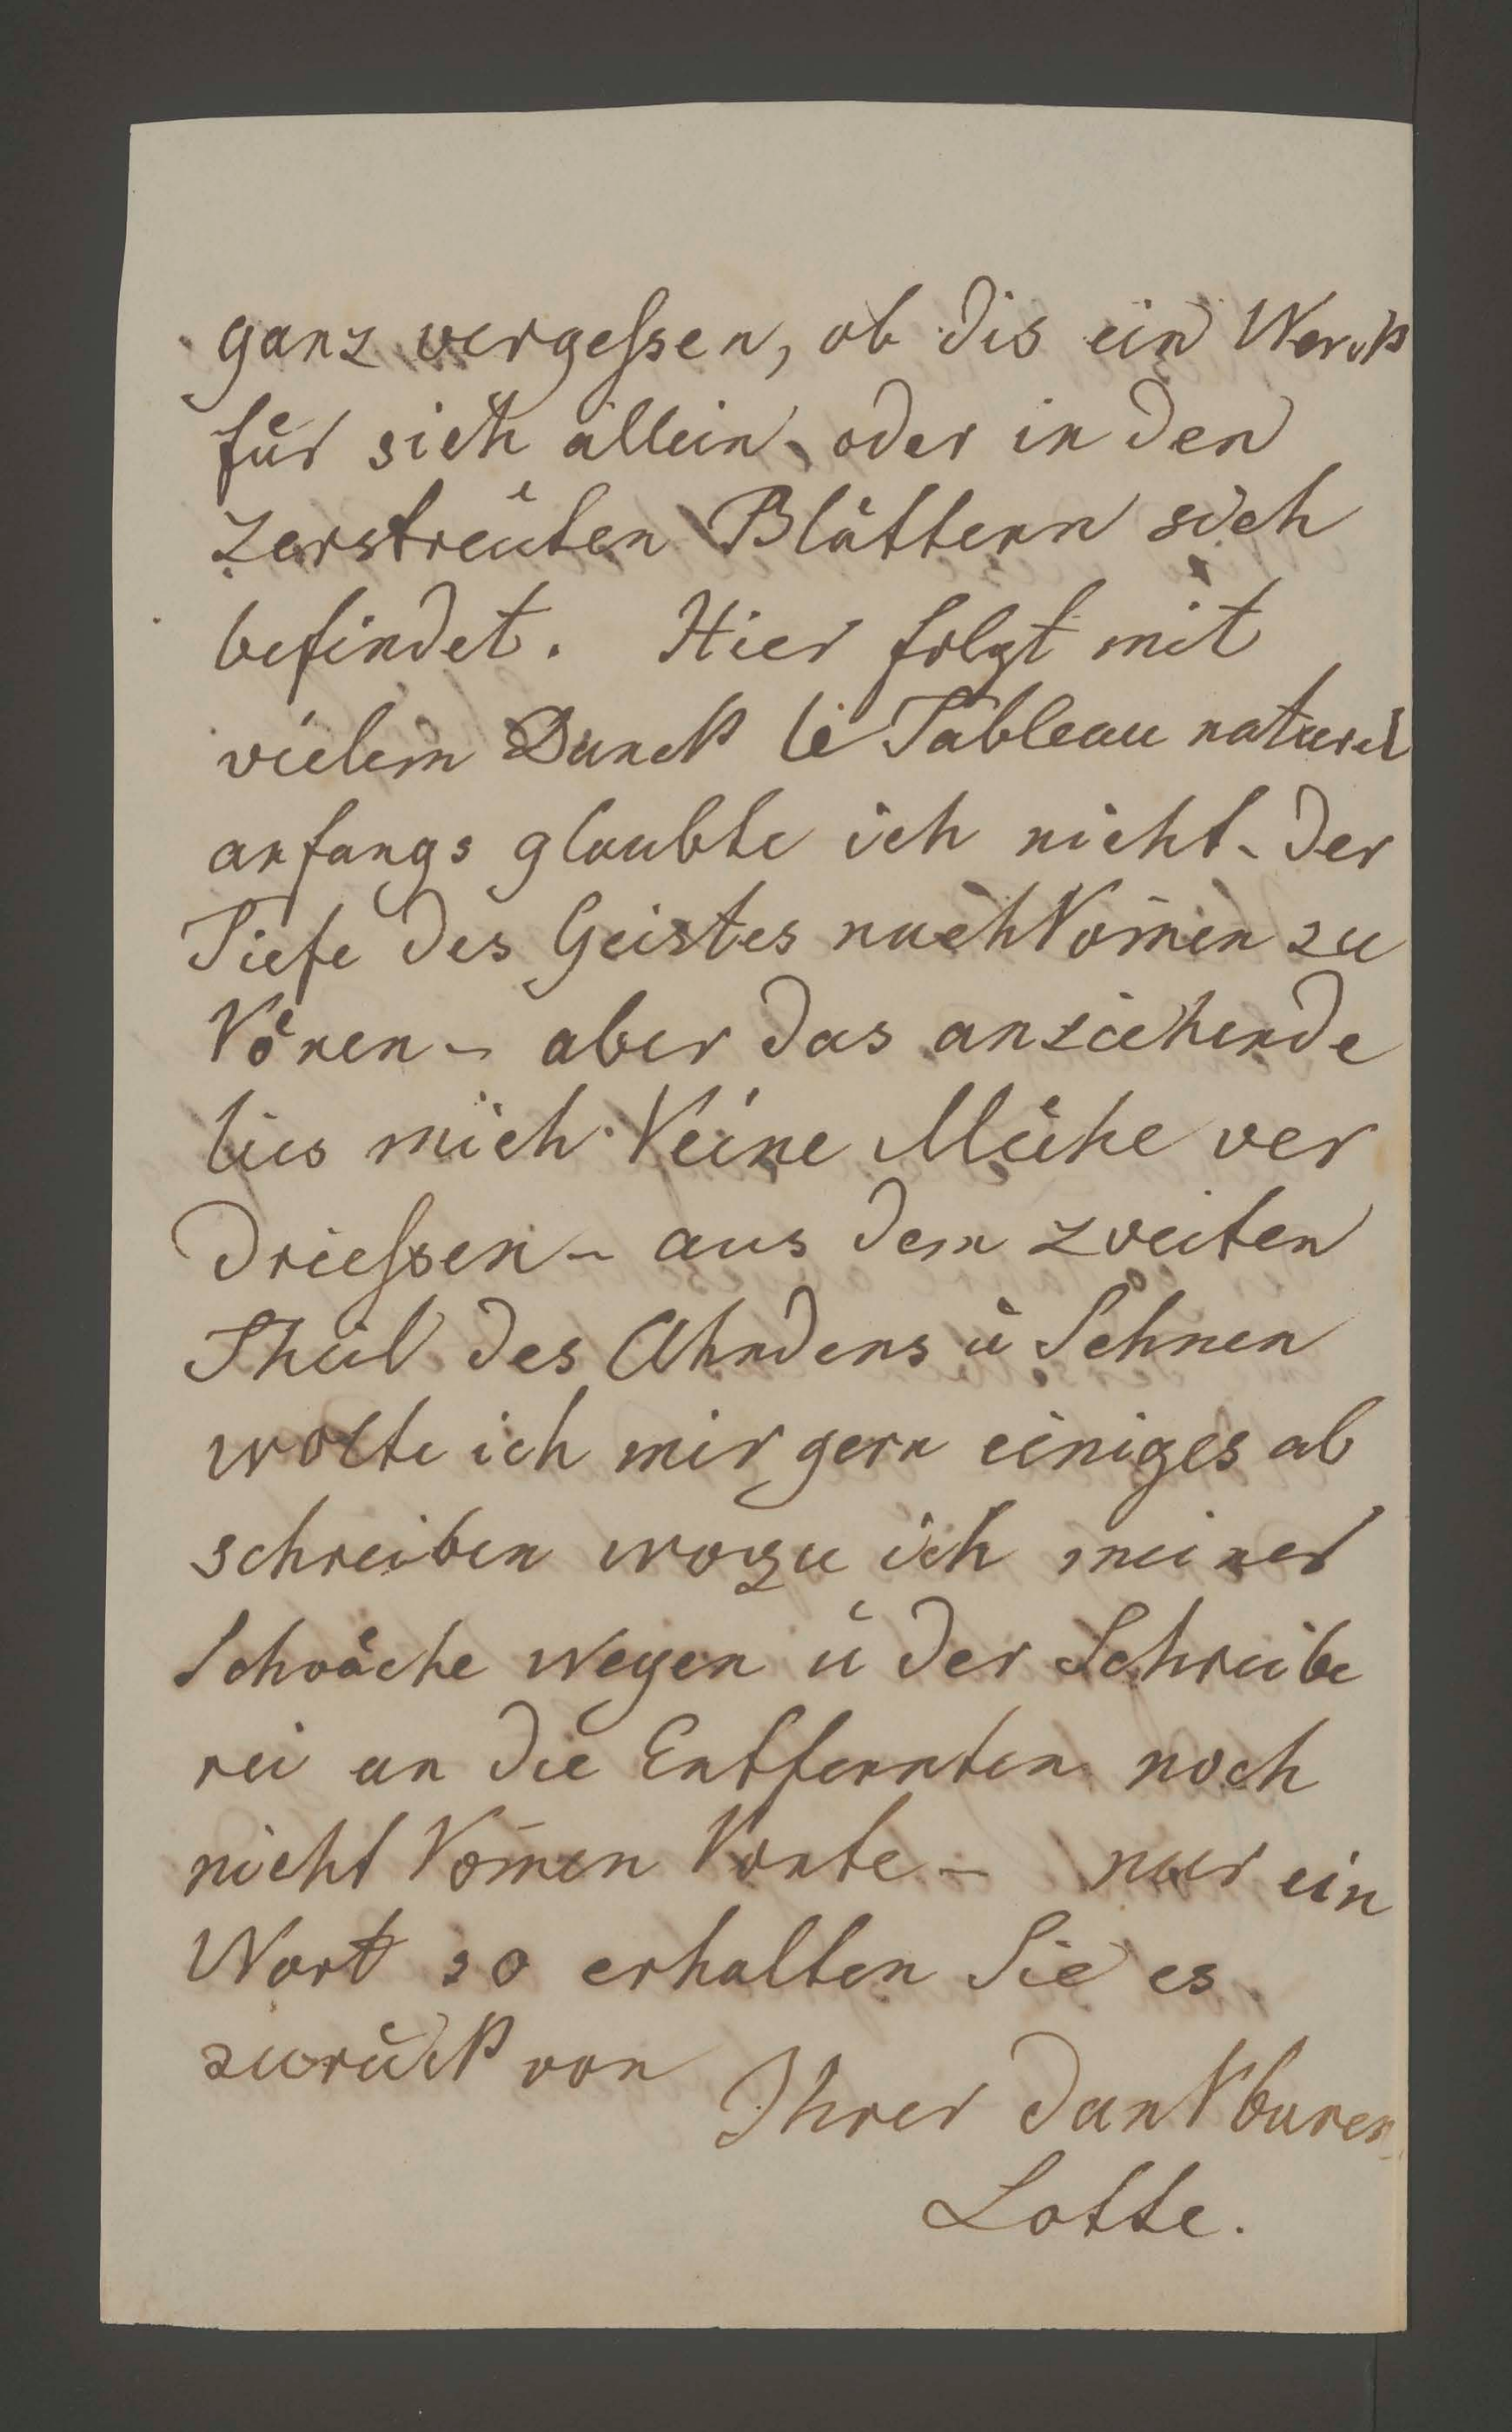 ganz vergessen, ob dis ein Werck
für sich allein, oder in den
Zerstreuten Blättern sich
befindet. Hier folgt mit
vielem Danck le Tableau naturel
anfangs glaubte ich nicht - der
Tiefe des Geistes nachkom̄en zu
könen - aber das anziehende
lies mich keine Mühe ver
driessen - aus dem zweiten
Theil des Ahndens u Sehnen
wolte ich mir gern einiges ab
schreiben wozu ich meiner
Schwäche wegen u der Schreibe
rei an die Entfernten noch
nicht kom̄en konte - nur ein
Wort so erhalten Sie es
zurück von
Ihrer dankbaren
Lotte.